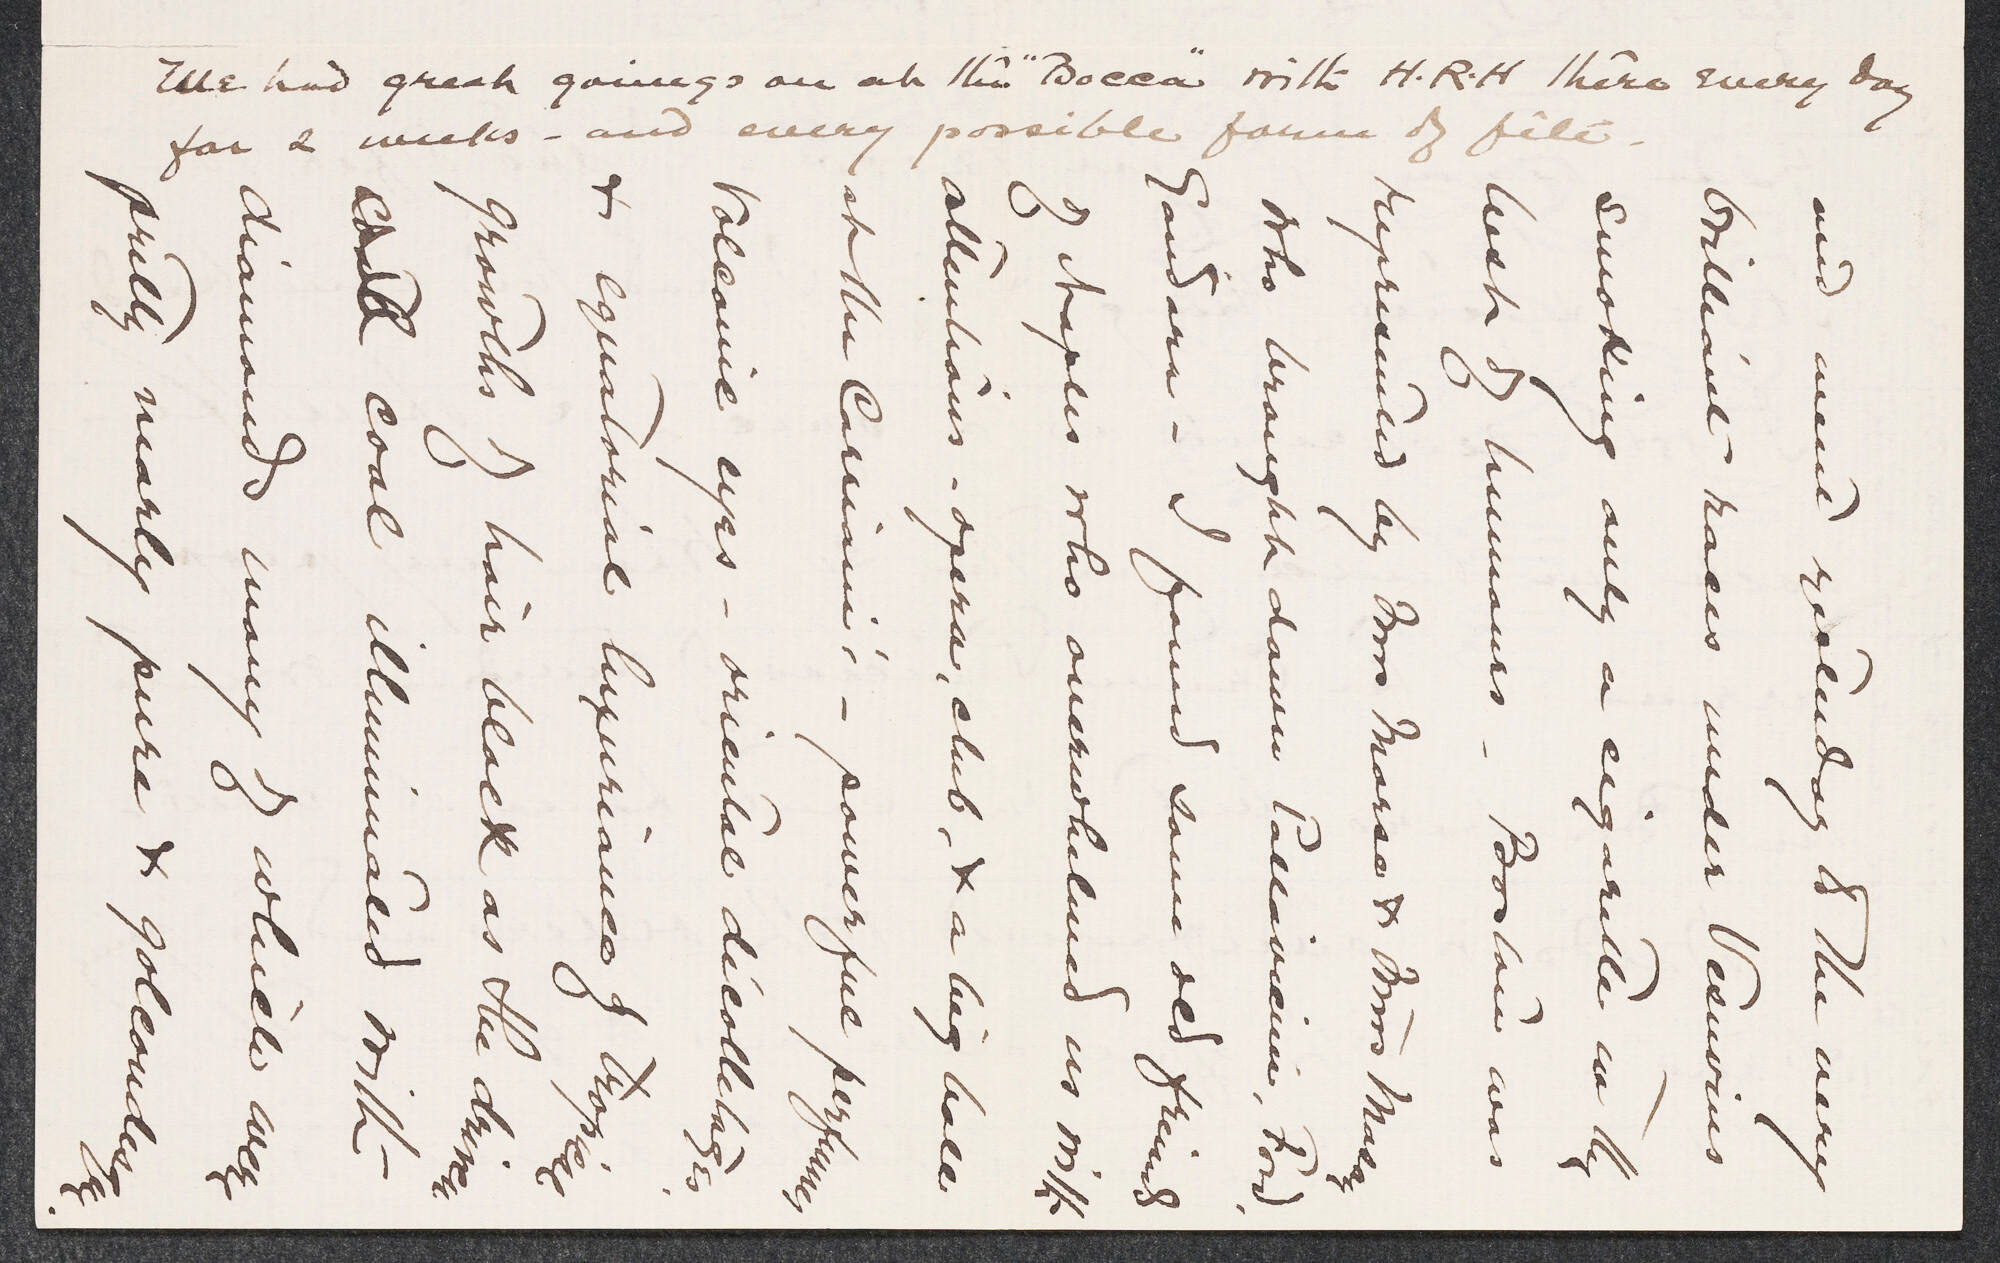 We had great goings on at the "Bocca" with H.R.H there every day
for 2 weeks - and every possible form of fête -
and went yesterday to the very
brilliant races under Vesuvius
smoking only a cigarette in the
best of humours - Boston was
represented by Mrs Morse & Miss
who brought down Pallavicini, Ford,
Gandara - I found some old friends
of Naples who overwhelmed us with
attentions - opera, club, & a big ball
at the - powerful perfumes,
volcanic eyes - oriental décolletages,
& equatorial luxuriance of tropical
growths of hair black as the driven
coal illuminated with
diamonds many of which were
pretty nearly pure & golcondesque.